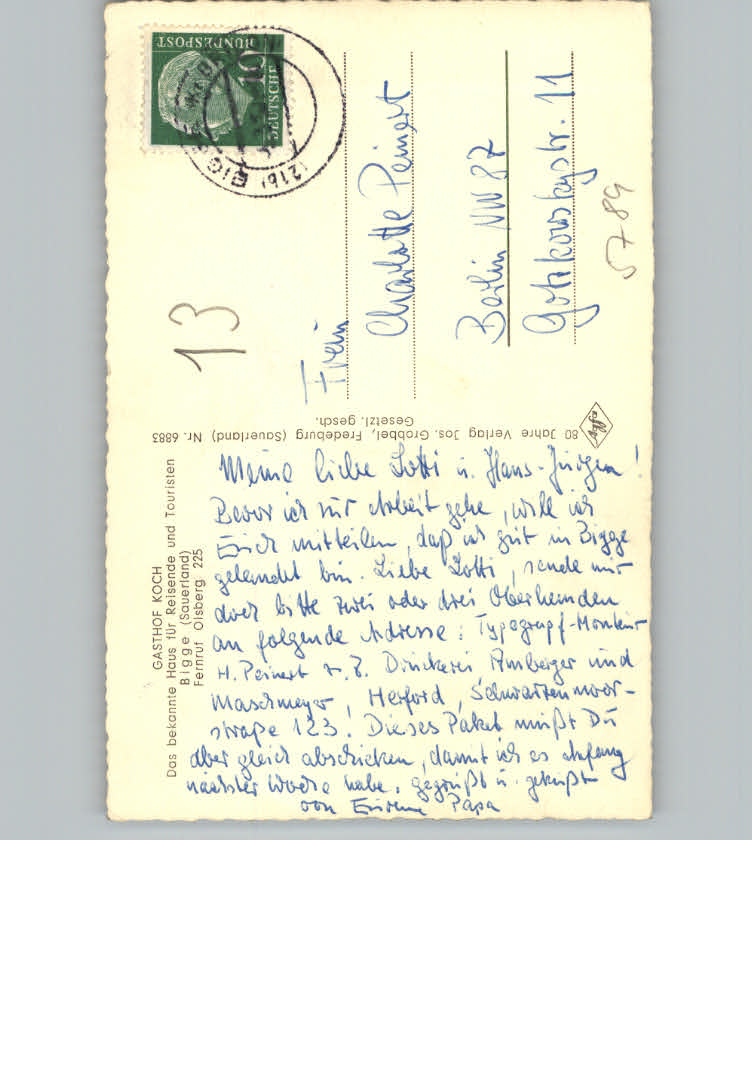 GASTHOF KOCH
Das bekannte Haus für Reisende und Touristen
Bigge (Sauerland)
Fernruf Olsberg 225
Meine liebe Lotti u. Hans-Jürgen!
Bevor ich zur Arbeit gehe, will ich
Euch mitteilen, daß ich gut in Bigge
gelandet bin. Liebe Lotti, sende mir
doch bitte zwei oder drei Oberhemden
an folgende Adresse: Typograph-Monteur
H. Peinert z. Z. Druckerei Amberger und
Maschmeyer, Herford, Schwarzenmoor-
straße 123. Dieses Paket mußt Du
aber gleich abschicken, damit ich es Anfang
nächster Woche habe. gegrüßt u. geküßt
von Eurem Papa
80 Jahre Verlag Jos. Grobbel, Fredeburg (Sauerland) Nr. 6883
Gesetzl. gesch.
Agfa
DEUTSCHE
BUNDESPOST
10
(21b) BIGGE
13
Frau
Charlotte Peinert
Berlin NW 87
Gotzkowskystr. 11
5789